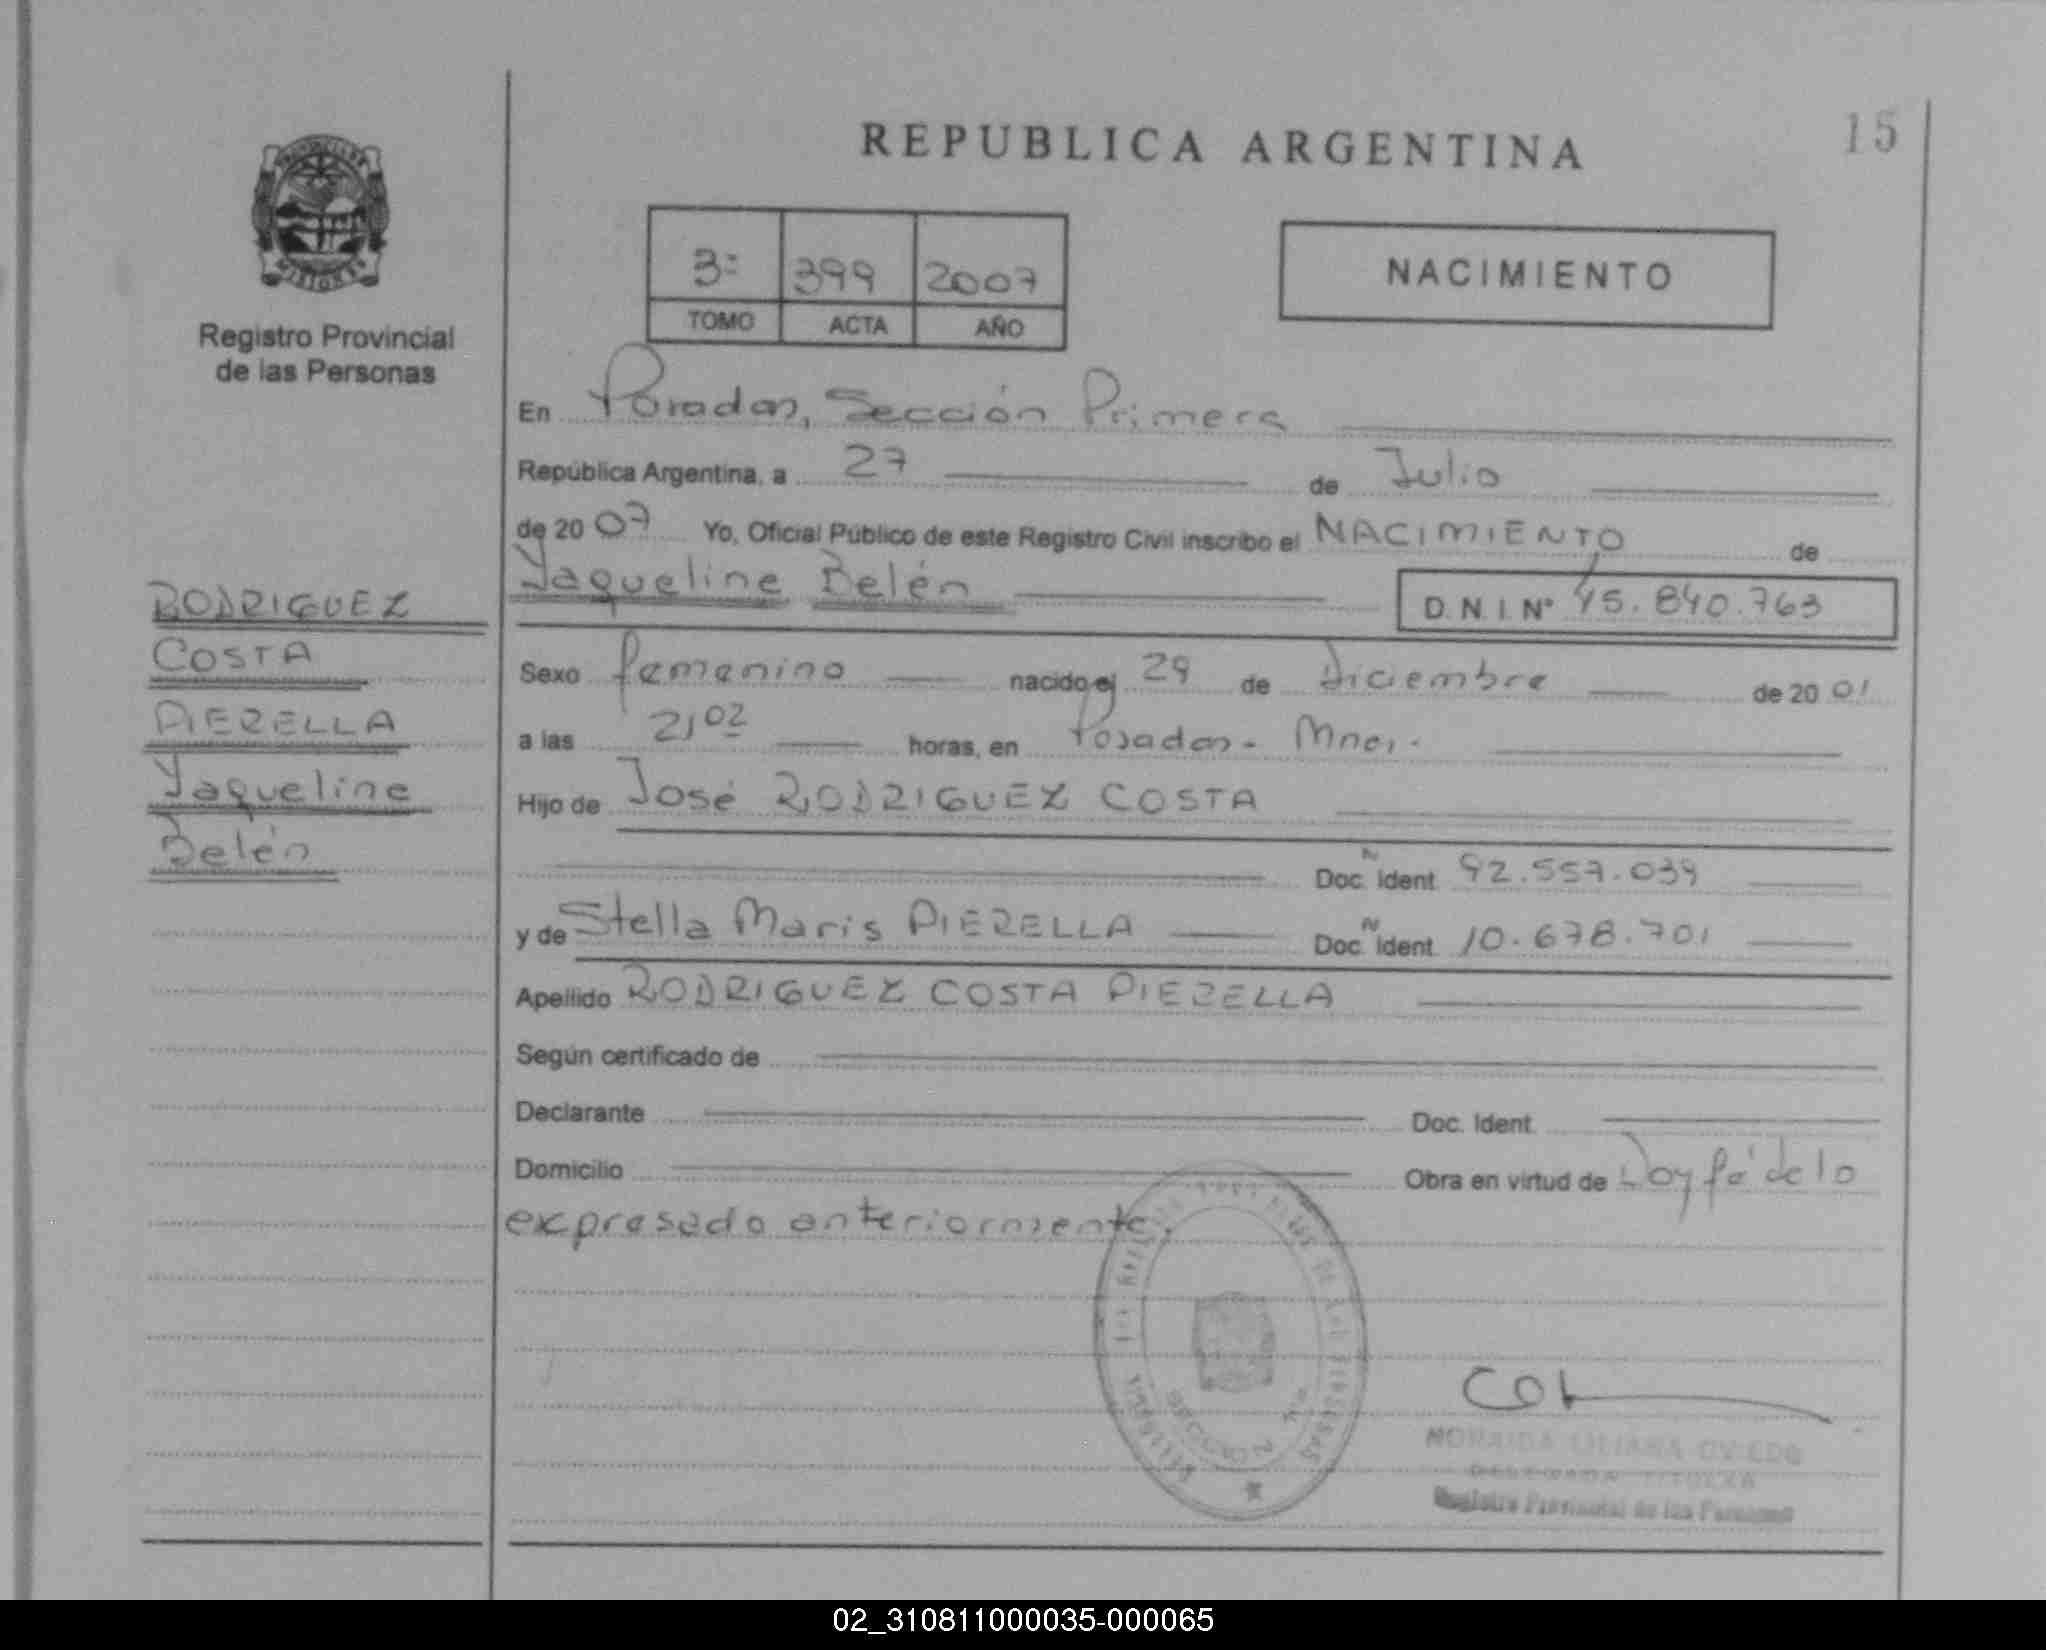 REPUBLICA ARGENTINA
15
3=
399
2007
TOMO
ACTA
AÑO
NACIMIENTO
Registro Provincial
de las Personas
En Posadas, Sección Primera
República Argentina, a 27 de Julio
de 20 07 Yo, Oficial Público de este Registro Civil inscribo el NACIMIENTO de
Yaqueline Belén D.N.I. Nº 45.840.763
RODRIGUEZ
COSTA
PIERELLA
Yaqueline
Belén
Sexo femenino nacido el 29 de Diciembre de 20 01
a las 21,02 horas, en Posadas - Mnes.
Hijo de José RODRIGUEZ COSTA
Doc. Ident. 92.557.039
y de Stella Maris PIERELLA Doc. Ident. 10.678.701
Apellido RODRIGUEZ COSTA PIERELLA
Según certificado de
Declarante Doc. Ident.
Domicilio Obra en virtud de Doy fé de lo
expresado anteriormente.
SECCION 1ra
LILIANA OVIEDO
TITULAR
Registro Provincial de las Personas
02_310811000035-000065